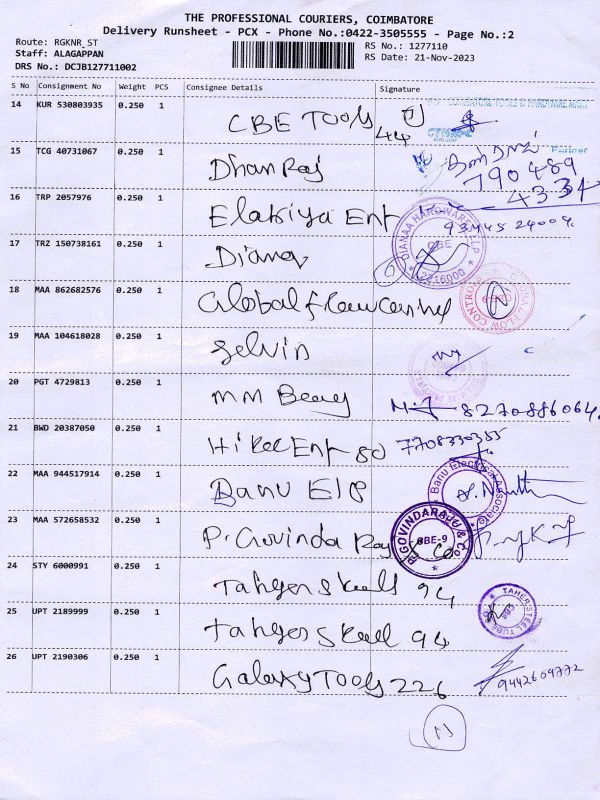 THE PROFESSIONAL COURIERS, COIMBATORE
Delivery Runsheet - PCX - Phone No.:0422-3505555 - Page No.:2
Route: RGKNR_ST
Staff: ALAGAPPAN
DRS No.: DCJB127711002
RS No.: 1277110
RS Date: 21-Nov-2023
S No Consignment No Weight PCS Consignee Details Signature
14 KUR 530803935 0.250 1 CBE Tools 44
15 TCG 40731067 0.250 1 Dhan Raj 790489
4334
16 TRP 2057976 0.250 1 Elakiya Ent
17 TRZ 150738161 0.250 1 Diana
DIANAA HARDWARES LLP CBE
18 MAA 862682576 0.250 1 Global flow
19 MAA 104618028 0.250 1 Selvin
20 PGT 4729813 0.250 1 MM 8270886064.
21 BWD 20387050 0.250 1 Ent 80 7708330385
22 MAA 944517914 0.250 1 Banu
Banu Electrical Associate
23 MAA 572658532 0.250 1 P. Govinda Raj & Co
P.GOVINDARAJU & Co. CBE-9
24 STY 6000991 0.250 1 94
25 UPT 2189999 0.250 1 94
TAHER STEEL TUBE
26 UPT 2190306 0.250 1 Galaxy Tools 226 9442609772